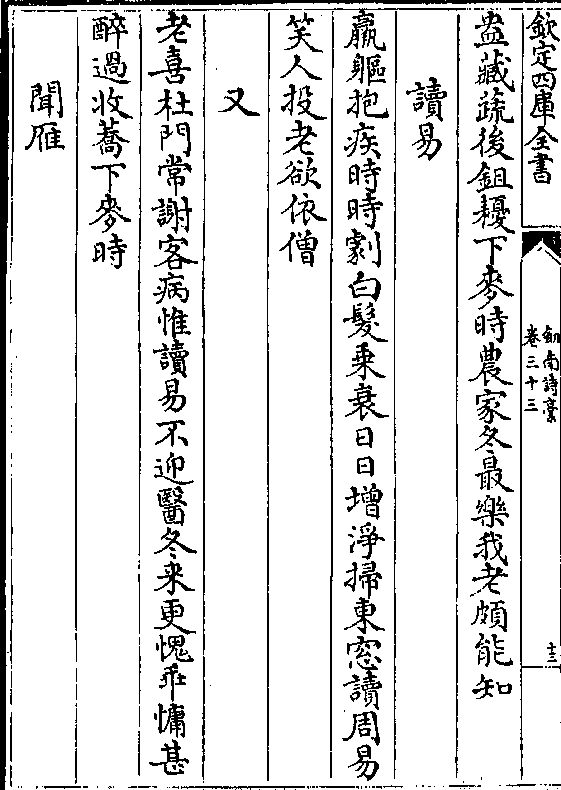 欽定四庫全書
劍南詩藁
卷三十三
十三
盎藏蔬後鉏耰下麥時農家冬最樂我老頗能知
讀易
羸軀抱疾時時劇白髮乗衰日日增淨掃東窓讀周易
笑人投老欲依僧
又
老喜杜門常謝客病惟讀易不迎醫冬来更愧乖慵甚
醉過收蕎下麥時
聞雁